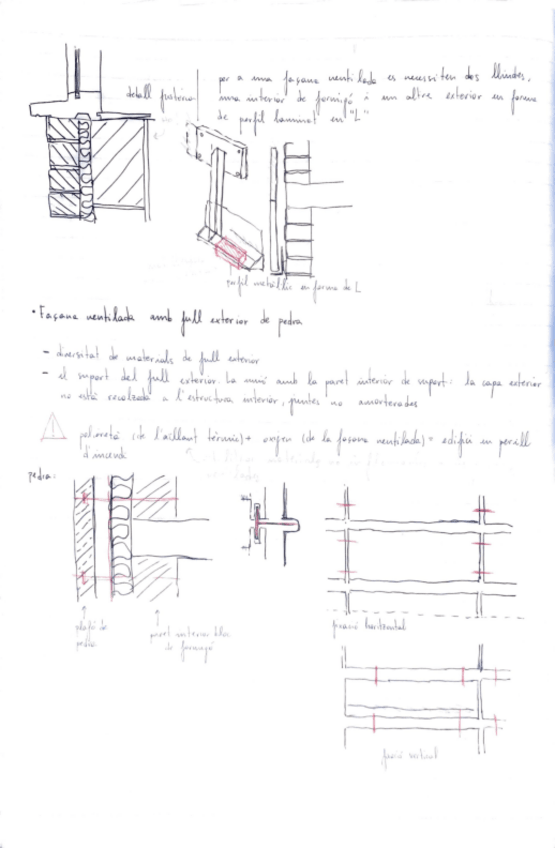 per a una façana ventilada es necessiten dos llindes,
una interior de formigó i un altre exterior en forma
de perfil laminat en "L"
detall
perfil metàl·lic en forma de L
• Façana ventilada amb full exterior de pedra
- diversitat de materials de full exterior
- el suport del full exterior. La unió amb la paret interior de suport: la capa exterior
no està recolzada a l'estructura interior, juntes no amorterades
poliuretà (de l'aïllant tèrmic) + oxigen (de la façana ventilada) = edifici en perill
d'incendi
pedra:
de
pedra
paret interior bloc
de formigó
fixació horizontal
fixació vertical